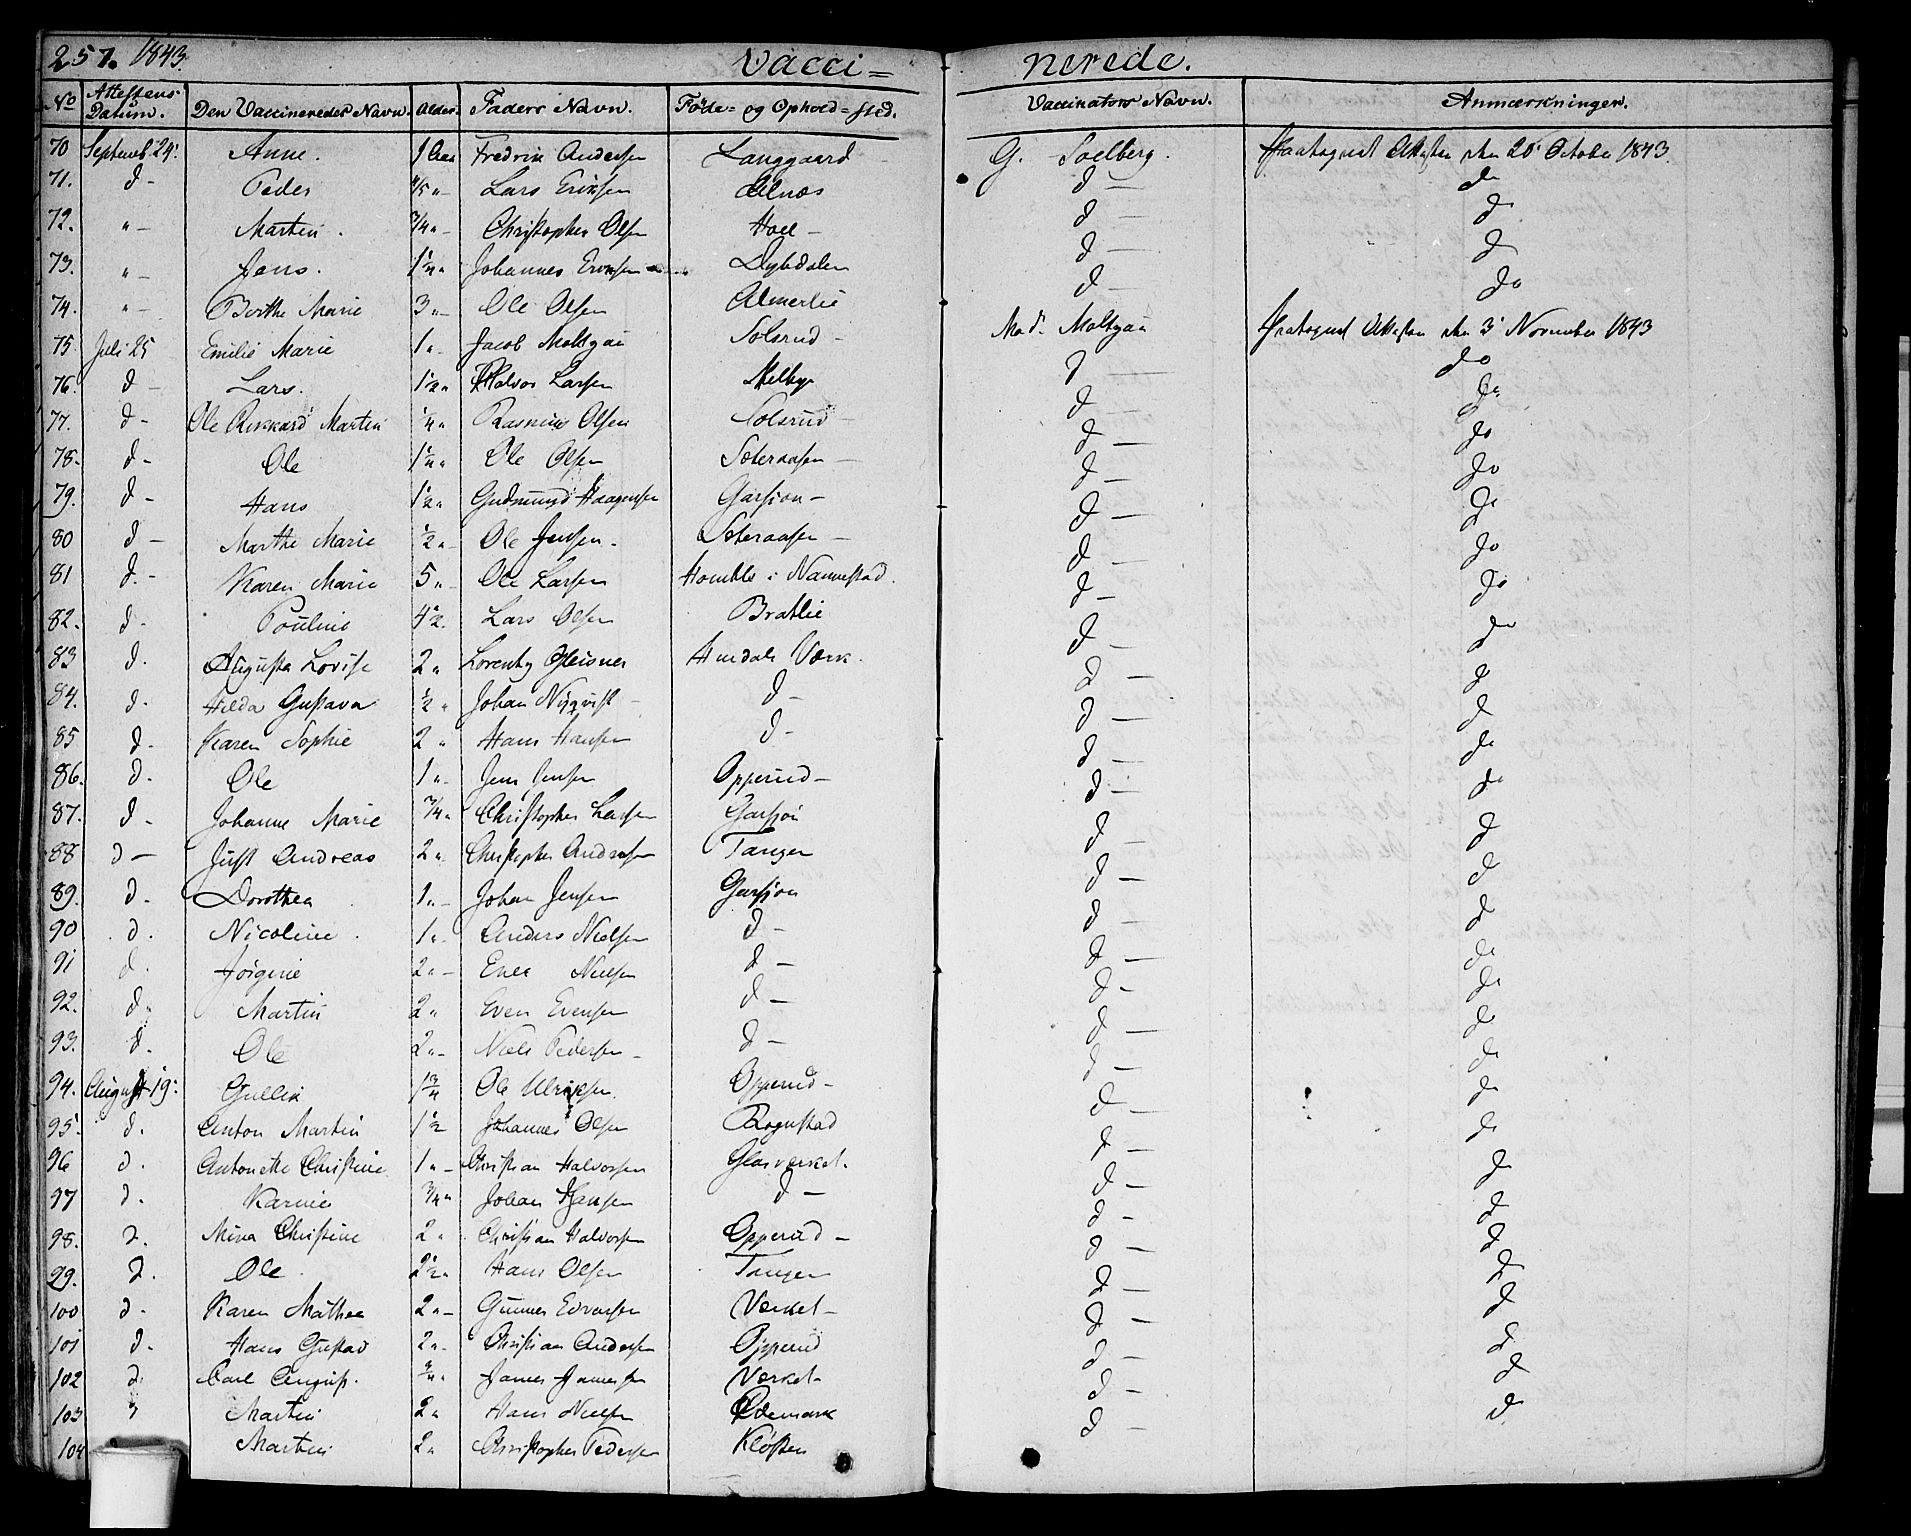 257. 1843. Vacci= nerede.
No Attestens Datum. Den Vaccineredes Navn. Alder. Faders Navn. Føde= og Ophold=sted. Vaccinators Navn. Anmærkninger.
70 Septemb. 24. Anne. 1 Aar Fredrik Andersen Langgaard G. Soelberg. Attesten den 20 October 1843.
71. d- Peder Lars Eriksen Alnæs d- do
72. "- Martin. 3/4 "- Christopher Olsen Hoel - d- d
73. "- Jens. 1 1/4 " Johannes Eriksen Dybdalen d- d
74. "- Berthe Marie 3 "- Ole Olsen Almerlie d- do
75 Juli 25 Emilie Marie 1 "- Jacob Moltzau Solsrud - Mad. Moltzau Attesten den 3 November 1843
76. d- Lars. 1 1/2 " Halvor Larsen Melbye d- do
77. d- Ole Rikkard Martin 1/4 " Rasmus Olsen Solsrud - d- do
78. d- Ole 1 1/4 " Ole Olsen Sæteraasen - d- do
79. d- Hans 1 1/2 " Gudmund Haagensen Garsjøn - d- do
80 d- Marthe Marie 1/2 "- Ole Jensen. Sæteraasen - d- do
81 d.- Karen Marie 5 "- Ole Larsen i Nannestad. d- do
82. d- Pouline 4 1/2 Lars Olsen Bratlie d- do
83 d. Augusta Lovise 2 " Lorentz Gleisner Hurdals Værk. d- do
84. d. Hilda Gustava 1/2 " Johan Nyqvist - d- d- d
85 d- Karen Sophie 2 " Hans Hansen d- d- d
86. d. Ole 1 "- Jens Jensen Opperud - d- do
87. d- Johanne Marie 3/4 " Christopher Larsen Garsjøn d- do
88 d- Just Andreas 2 "- Christopher Andersen Tangen d- d
89. d. Dorothea 1 "- Johan Jensen Garsjøn d- d
90 d. Nicoline 1 "- Anders Nielsen d- d- d
91 d. Jørgine 2 "- Even Nielsen d- d- do
92. d. Martin 2 " Even Evensen d- d- do
93. d. Ole 2 "- Niels Pedersen - d- d- do
94. August 19. Gullik 1 3/4 Ole Ulriksen. Opperud - d- do
95. d. Anton Martin 1 1/2 Johannes Olsen Rognstad d- do
96 d. Antonette Christine 1 "- Christian Halvorsen Glasværket. d- do
97 d. Karine 3/4 " Johan Hansen d- d- d
98. d. Mina Christine 2 " Christian Halvorsen Opperud - d- d
99. d. Ole 2 1/2 " Hans Olsen Tangen d- d
100 d. Karen Mathea 2 "- Gunner Evensen Værket - d- d
101 d. Hans Gustav 2 "- Christian Andersen Opperud d- d
102 d. Carl August. Værket - d- d
103 d Martin 2 " Hans Nielsen Ødemark d- d
104 Martin 2 " Christopher Pedersen Kløften d-